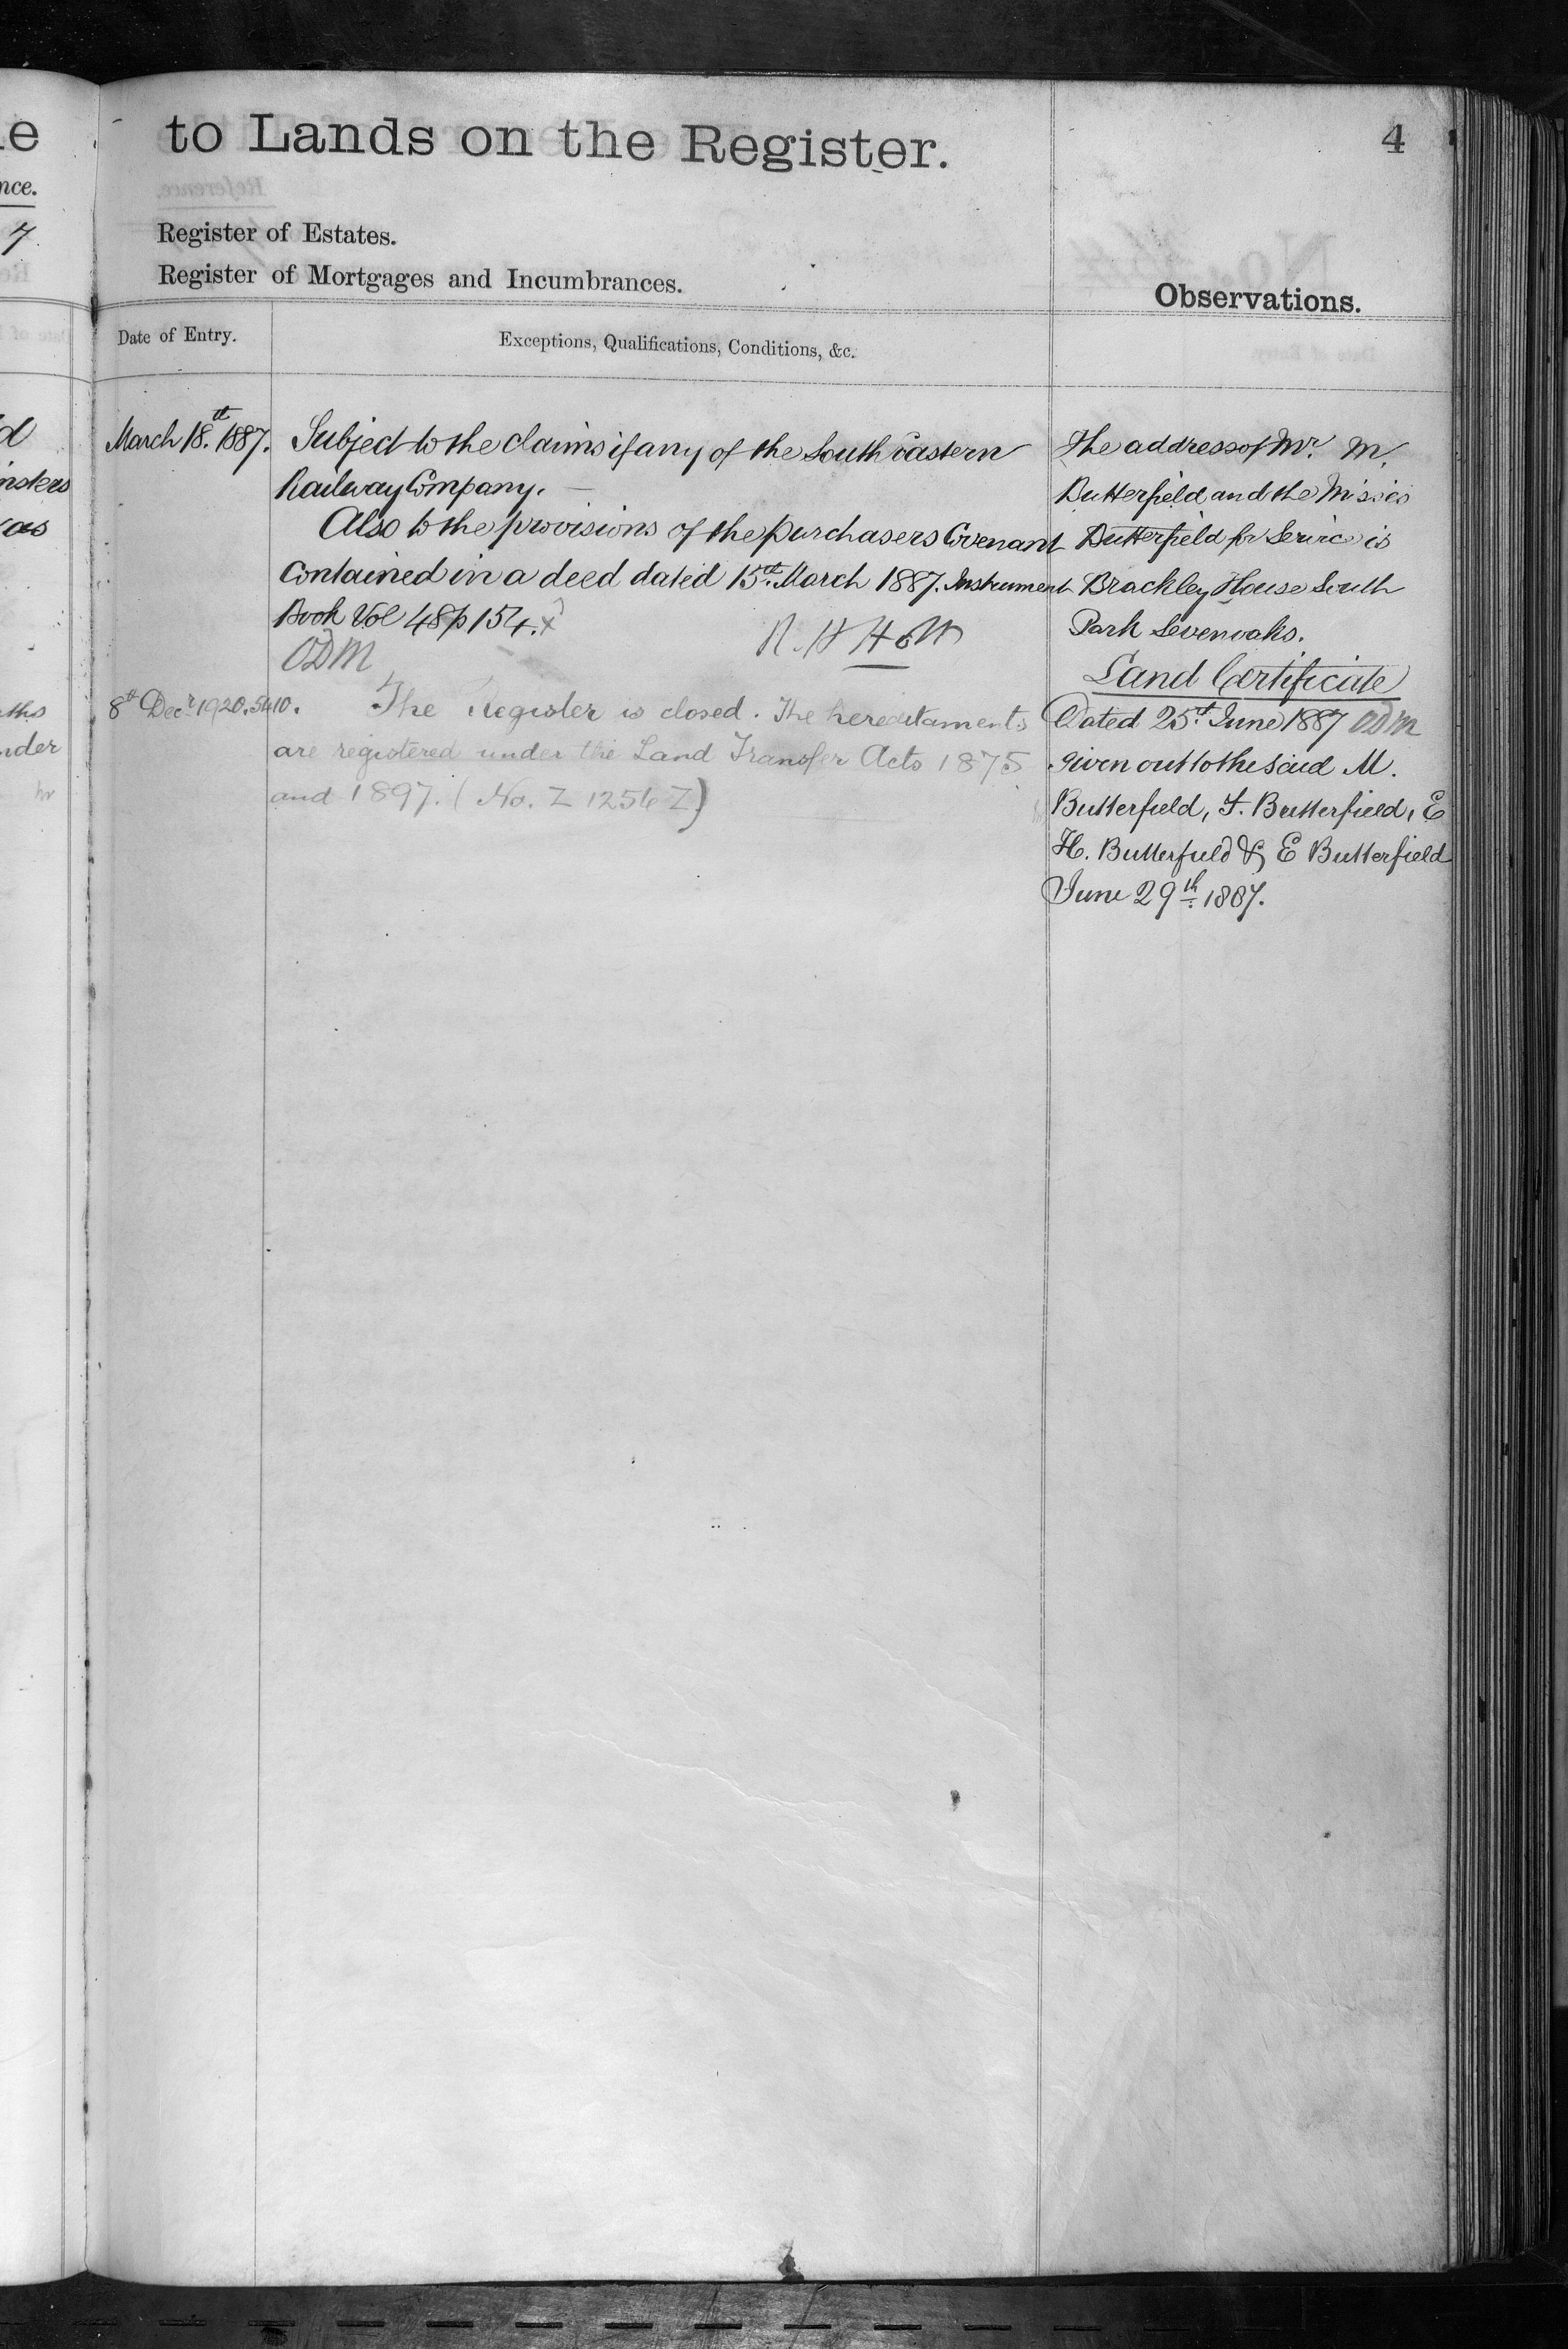 to Lands on the Register.
4
Register of Estates.
Register of Mortgages and Incumbrances.
Observations.
Date of Entry.
Exceptions, Qualifications, Conditions, &c.
March 18.th 1887.
Subject to the claims if any of the South Eastern
Railway Company.
Also to the provisions of the purchasers Covenant
contained in a deed dated 15th. March 1887. Instrument
Book Vol 48 p 154.
ODM
8th Decr 1920. 5410.
The Register is closed. The hereditaments
are registered under the Land Transfer Acts 1875
and 1897. (No. Z 1256 Z)
The address of Mr. M.
Butterfield and the Misses
Butterfield for Service is
Brackley House South
Park Sevenoaks.
Land Certificate
Dated 25th. June 1887 ODM
given out to the said M.
Butterfield, F. Butterfield, E
H. Butterfield & E Butterfield
June 29th. 1887.